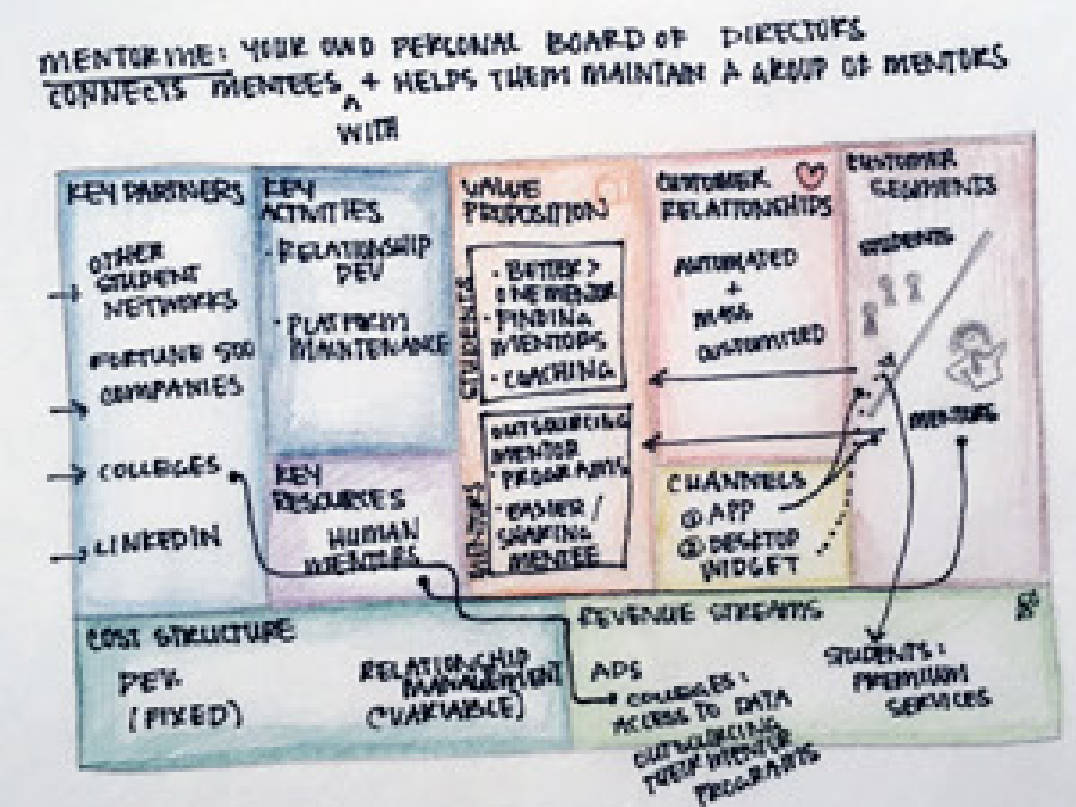 MENTOR ME: YOUR OWN PERSONAL BOARD OF DIRECTORS
CONNECTS MENTEES ^ + HELPS THEM MAINTAIN A GROUP OF MENTORS
WITH
KEY PARTNERS
OTHER
STUDENT
NETWORKS
FORTUNE 500
COMPANIES
COLLEGES
LINKEDIN
KEY
ACTIVITIES
· RELATIONSHIP
DEV
· PLATFORM
MAINTENANCE
KEY
RESOURCES
HUMAN
MENTORS
VALUE
PROPOSITION
STUDENTS
· BETTER >
ONE MENTOR
· FINDING
MENTORS
· COACHING
MENTORS
OUTSOURCING
MENTOR
PROGRAMS
· EASIER /
SHARING
MENTEE
CUSTOMER
RELATIONSHIPS
AUTOMATED
+
MASS
CUSTOMIZED
CHANNELS
① APP
② DESKTOP
WIDGET
CUSTOMER
SEGMENTS
STUDENTS
MENTORS
COST STRUCTURE
DEV.
(FIXED)
RELATIONSHIP
MANAGEMENT
(VARIABLE)
REVENUE STREAMS
$
ADS
COLLEGES:
ACCESS TO DATA
OUTSOURCING
THEIR MENTOR
PROGRAMS
STUDENTS:
PREMIUM
SERVICES